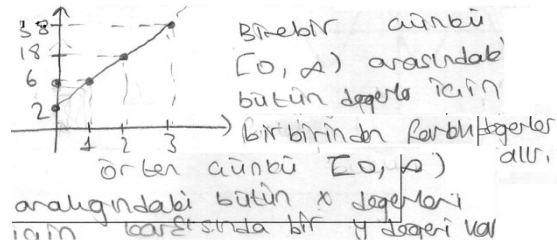 38
18
6
2
1 2 3
Birebir çünkü
[0, ∞) arasındaki
bütün değerle için
birbirinden farklı değerler
alır.
örten çünkü [0, ∞)
aralığındaki bütün x değerleri
için karşısında bir y değeri var